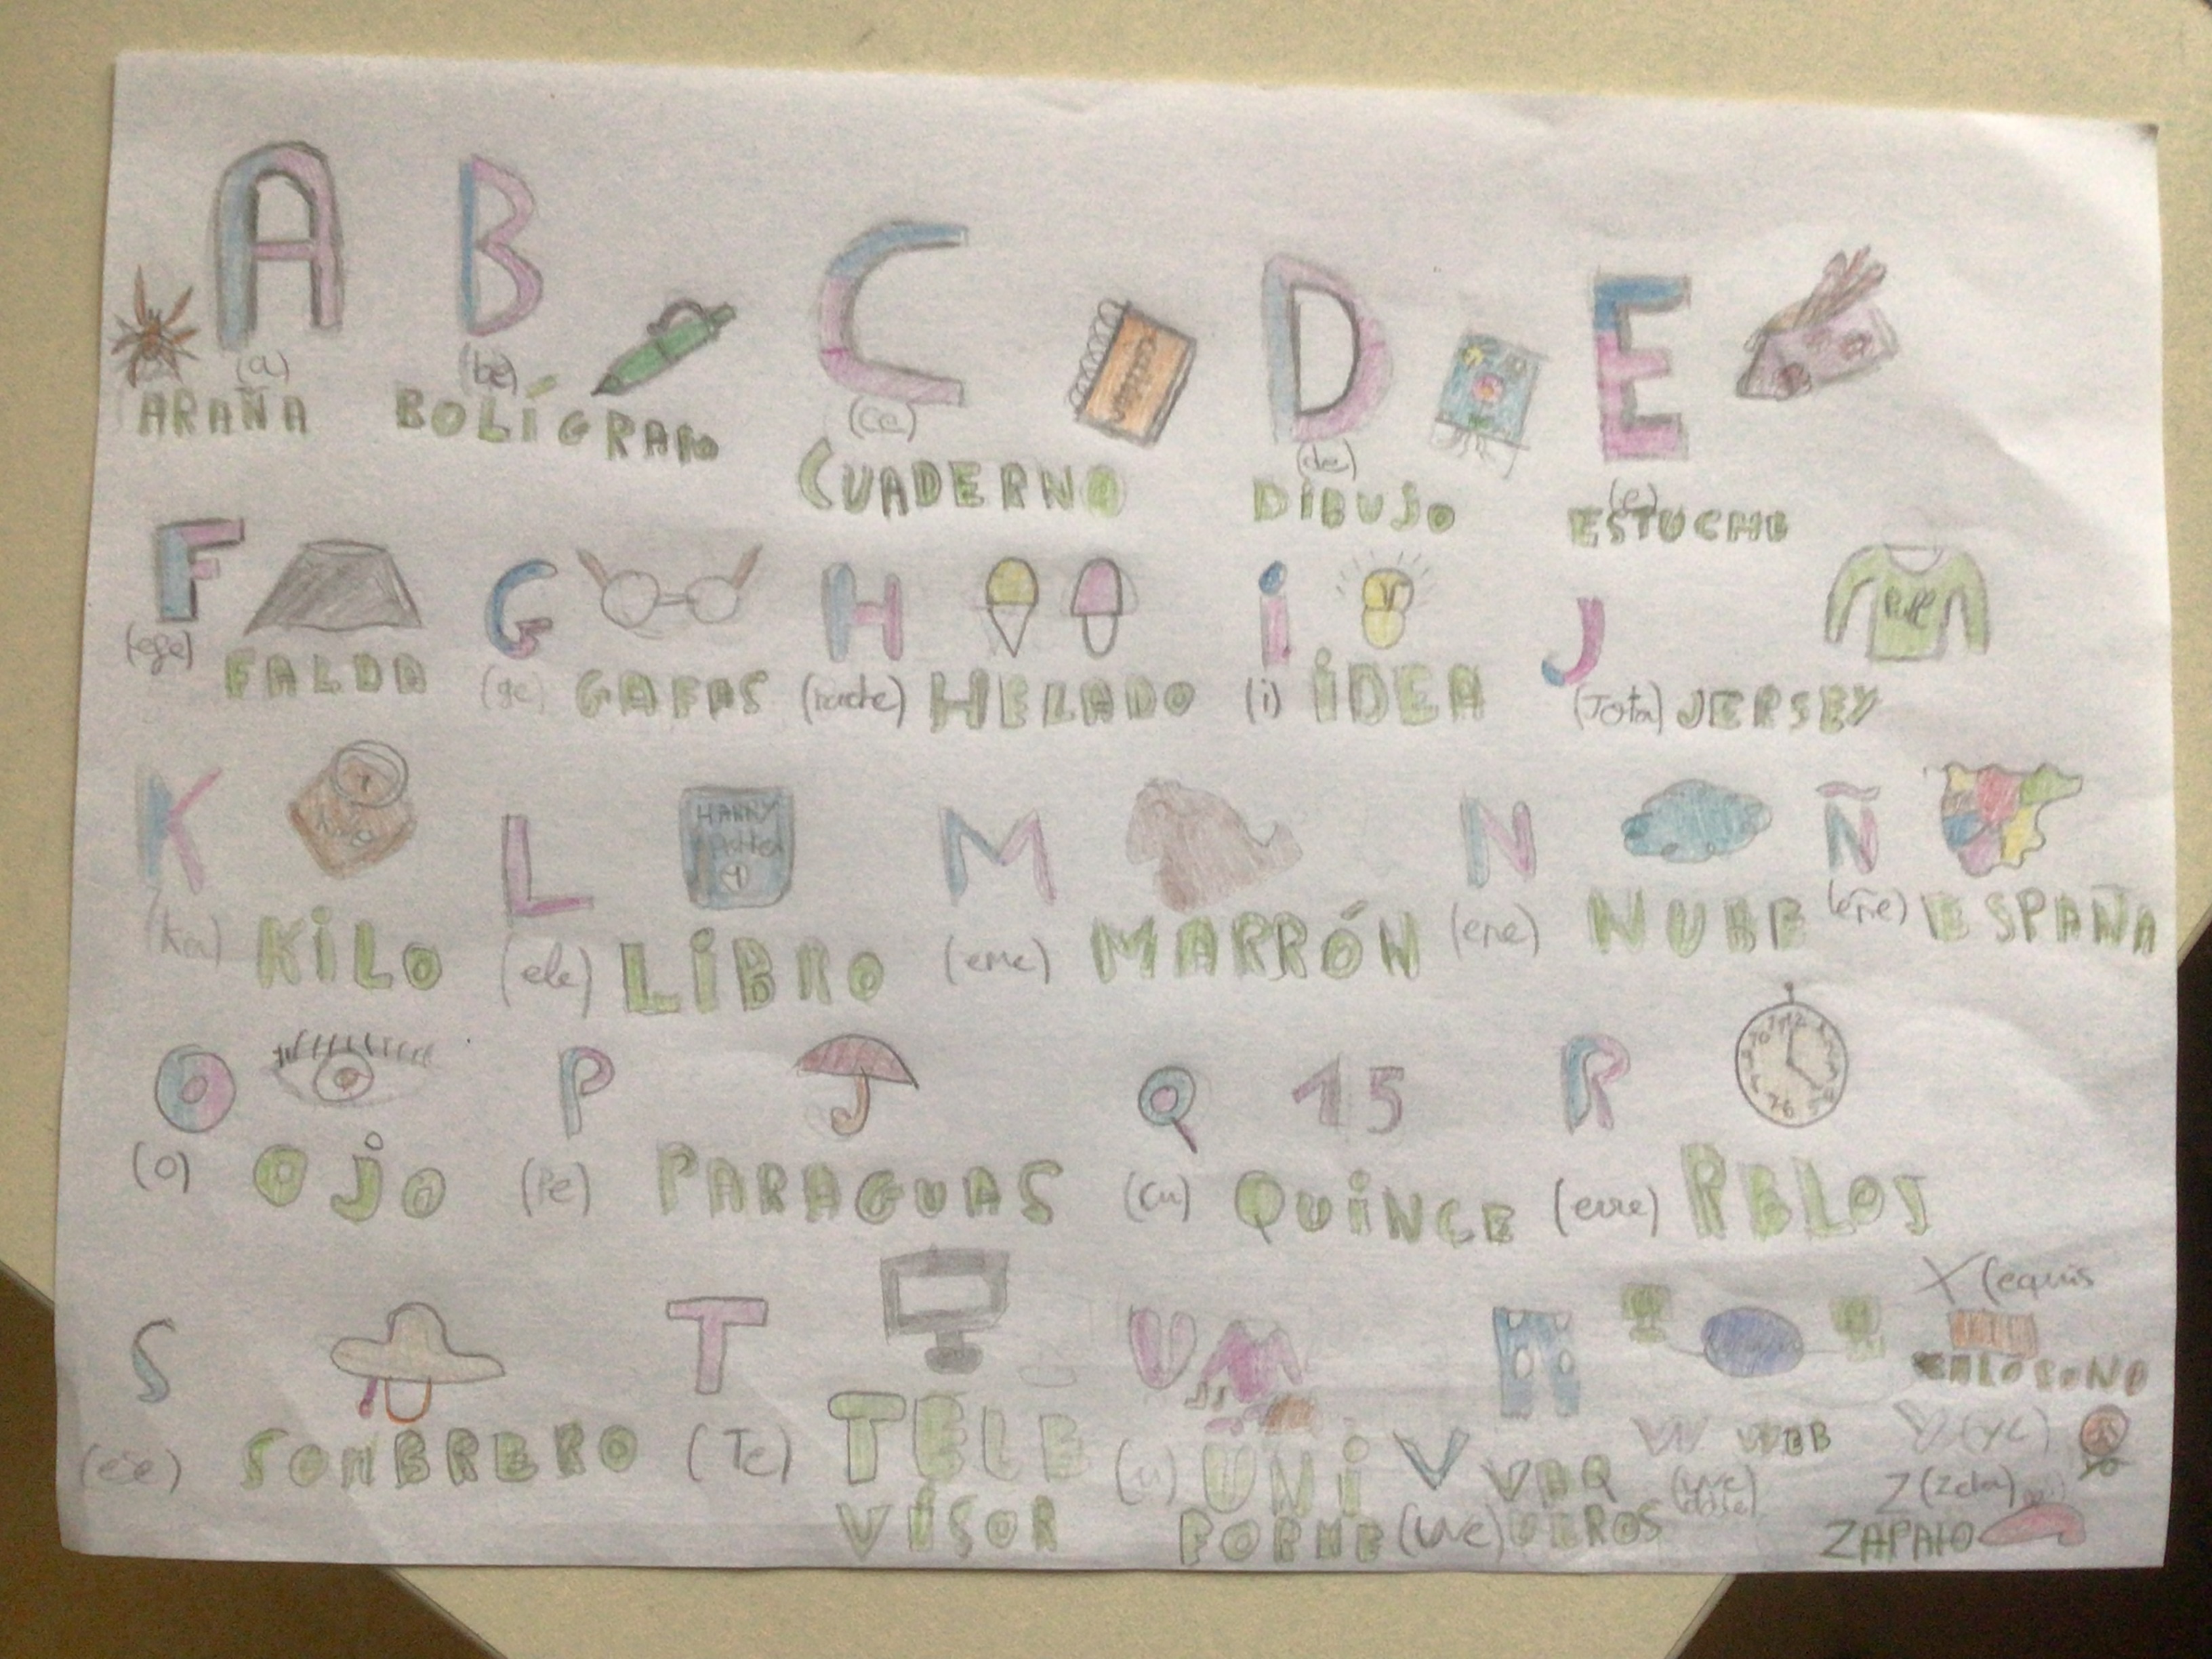 A B C D E
(a) (be) (ce) (de) (e)
ARAÑA BOLÍGRAFO CUADERNO DIBUJO ESTUCHE
F G H i J
(efe) FALDA (ge) GAFAS (hache) HELADO (i) iDEA (Jota) JERSEY
K L HARRY Potter M N Ñ
(ka) KiLO (ele) LiBRO (eme) MARRÓN (ene) NUBE (eñe) ESPAÑA
O P Q 15 R
(o) OJO (Pe) PARAGUAS (cu) QUiNCE (erre) RELOJ
S T U X (equis
XILOFONO
(ese) SOMBRERO (Te) TELE (u) UNi V VAQ W WEB Y (ye)
YO
VISOR FORME (uve) UEROS (uve doble) Z (zeta)
ZAPATO